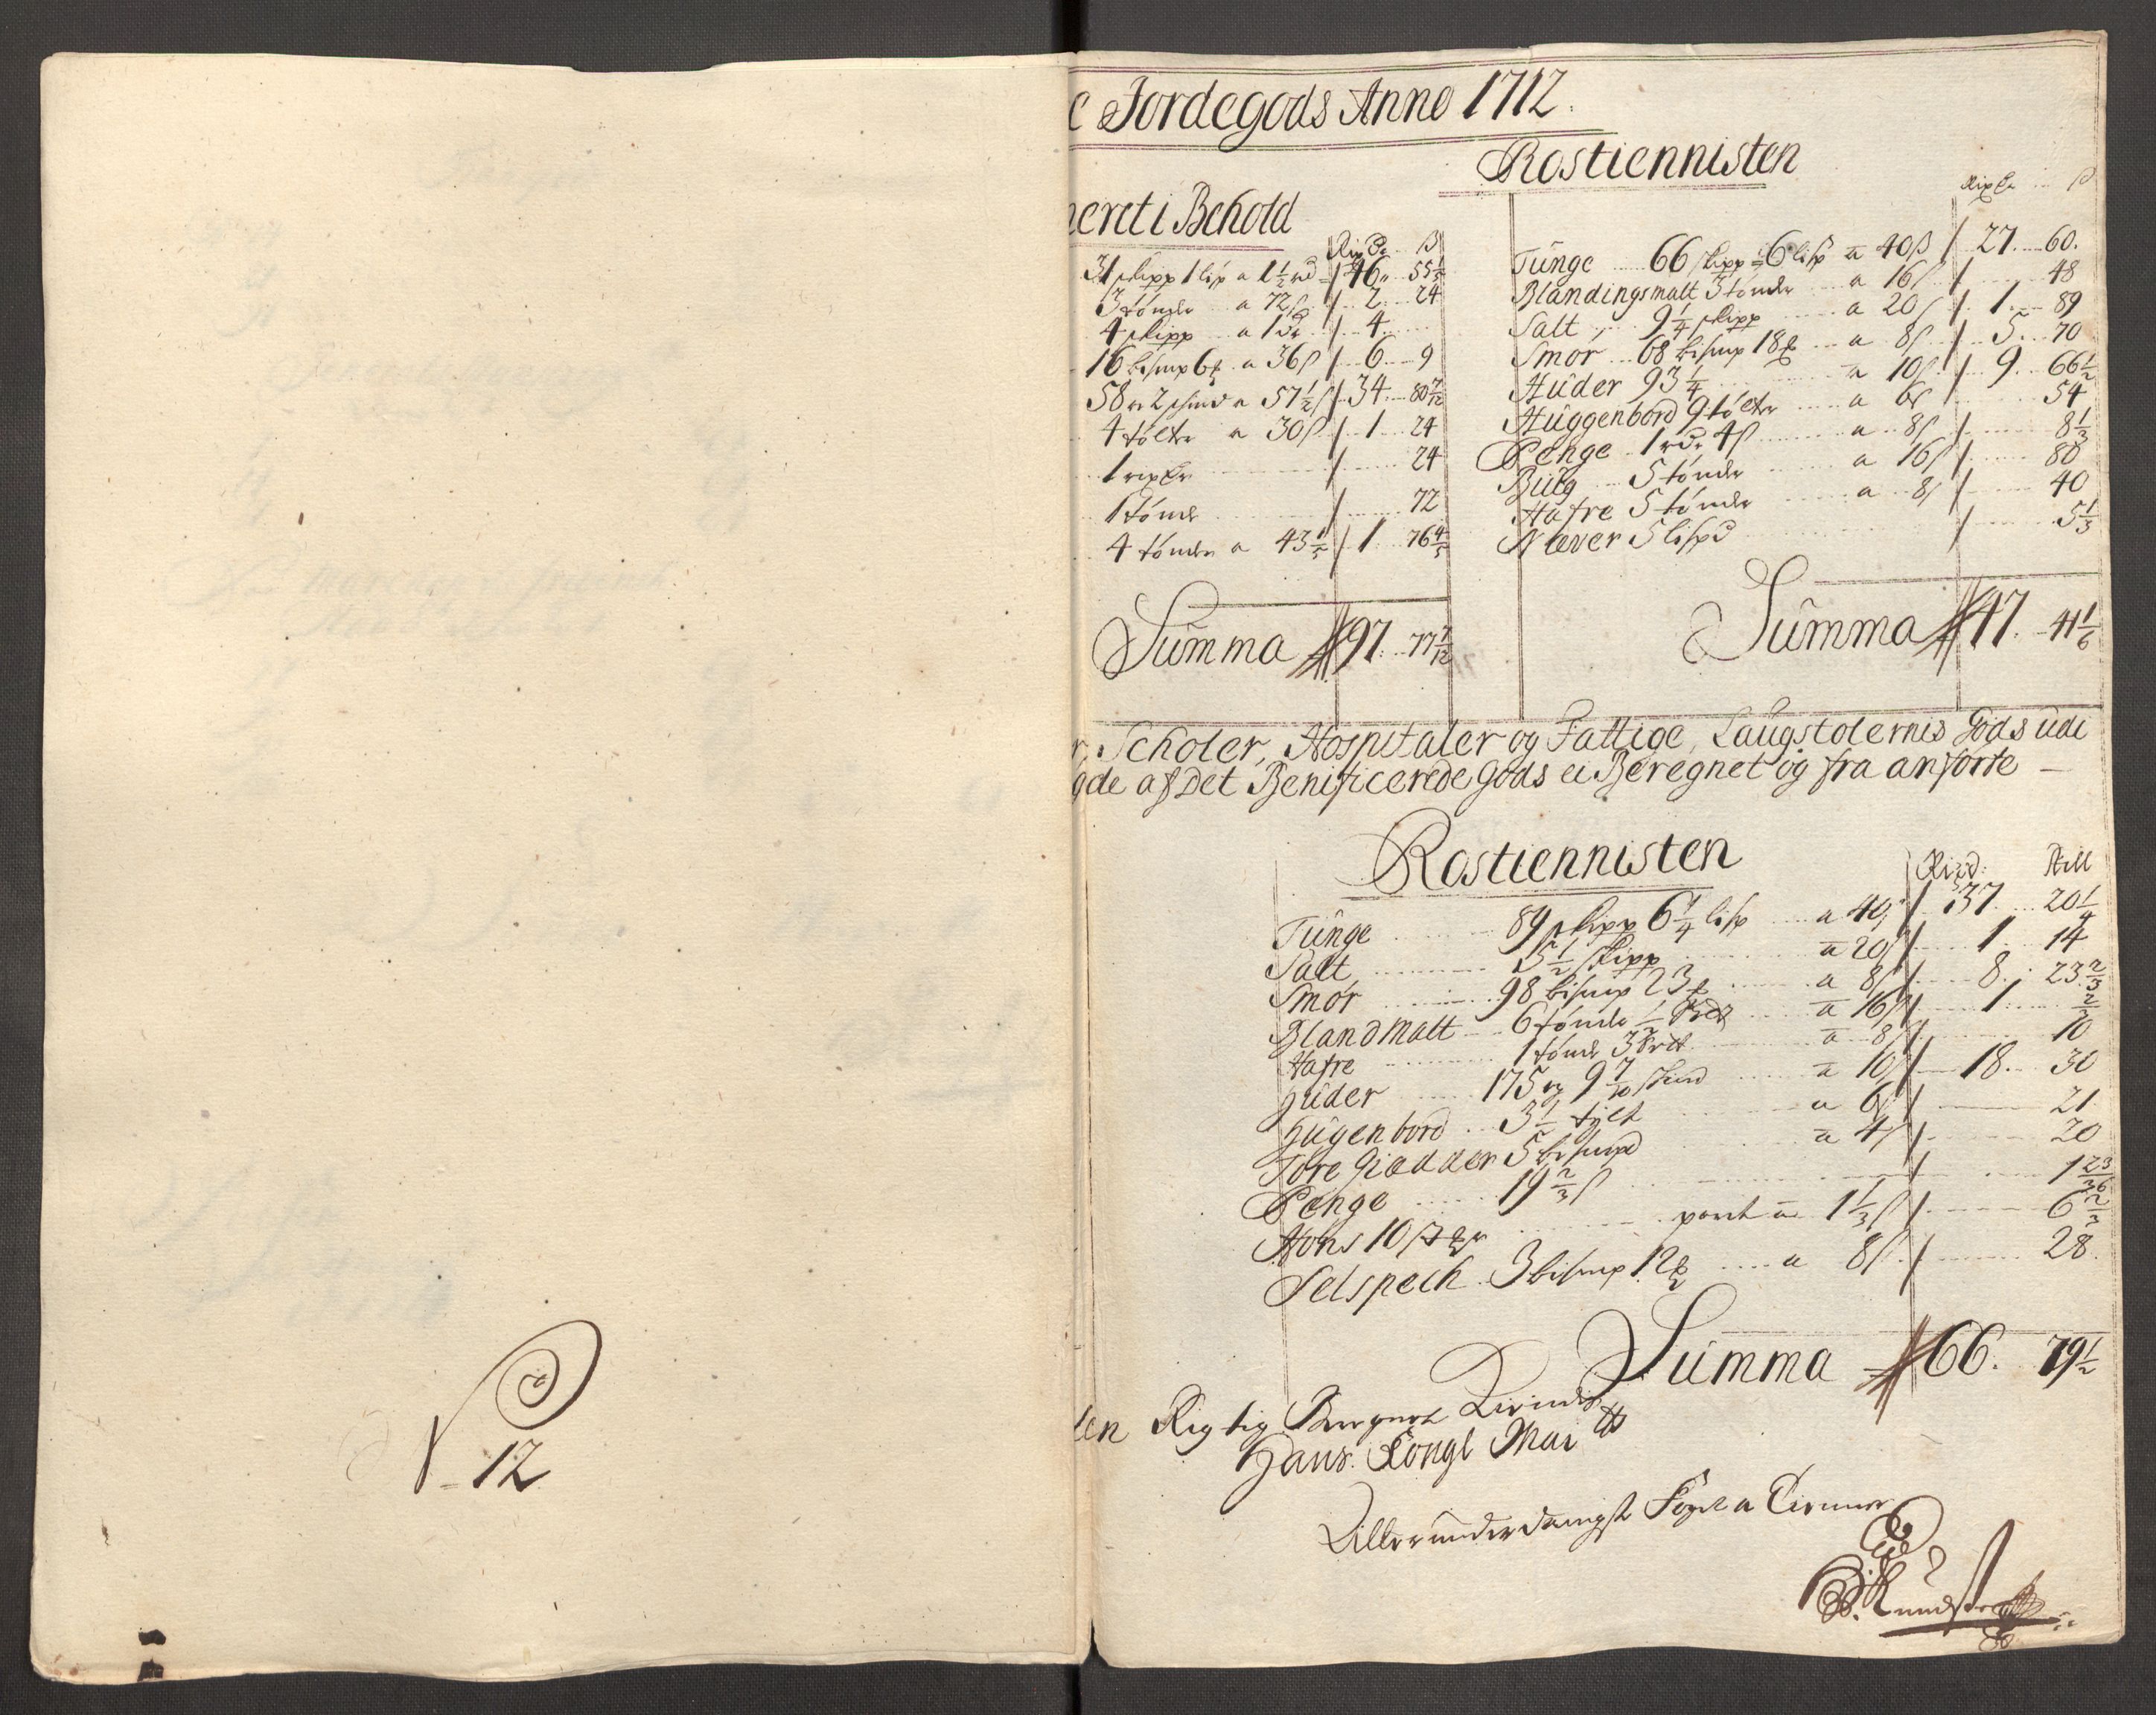 N 12
Jordegods Anno 1712.
neret i Behold
Rixdr ß
31 skipp 1 lisp a 1½ rd 46 55⅕
3 tønder a 72 ß 2 24
4 skipp a 1 dr 4
16 bismp 6 a 36 ß 6 9
58 2 skind a 57½ ß 34 80 7/12
4 tølter a 30 ß 1 24
1 rixdr 24
1 tønde 72
4 tønder a 43⅕ 1 76⅘
Summa 97. 77 7/12
Rostiennisten
Rixdr ß
Tunge 66 skipp 6 lisp a 40 ß 27 60.
Blandingsmalt 3 tønder a 16 ß 48
Salt 9¼ skipp a 20 ß 1 89
Smør 68 bismp 18 a 8 ß 5 70
Huder 93¼ a 10 ß 9 66½
Huggenbord 9 tølter a 6 ß 54
Penge 1 rdr 4 ß a 8 ß 8⅓
Büig 5 tønder a 16 ß 80
Hafre 5 tønder a 8 ß 40
Næver 5 lispd 5⅓
Summa 47. 41⅙
r, Scholer, Hospitaler og Fattige, Laugstolernis Gods udi
gde af Det Benificerede Gods ei Beregnet og fra anførte
Rostiennisten
Rixd: Skill
Tunge 89 skipp 6¼ lisp a 40 ß 37 20¼
Salt 5½ skipp a 20 ß 1 14
Smør 98 bismp 23 a 8 ß 8. 23⅔
Bland Malt 6 tønder a 16 ß 1 ⅔
Hafre 1 tønde 3 a 8 ß 10
Huder 175 og 9 7/10 skind a 10 ß 18. 30
Hugenbord 3½ tylt a 6 ß 21
Tøre Giædder 5 bismpd a 4 ß 20
Penge 19⅔ ß 1 23/36
Høns 10 a 1⅓ ß 6⅔
Selspech 3 bismp 12 a 8 ß 28.
Summa 66. 79½
Rigtig
Hans Kongl Mai tts
Allerunderdanigst